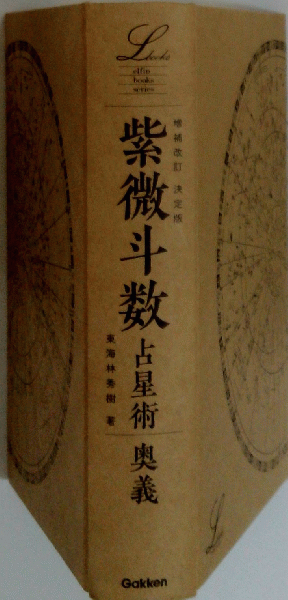 L books
elfin
books
series
増補改訂 決定版
紫微斗数
占星術 奥義
東海林秀樹 著
Gakken
L